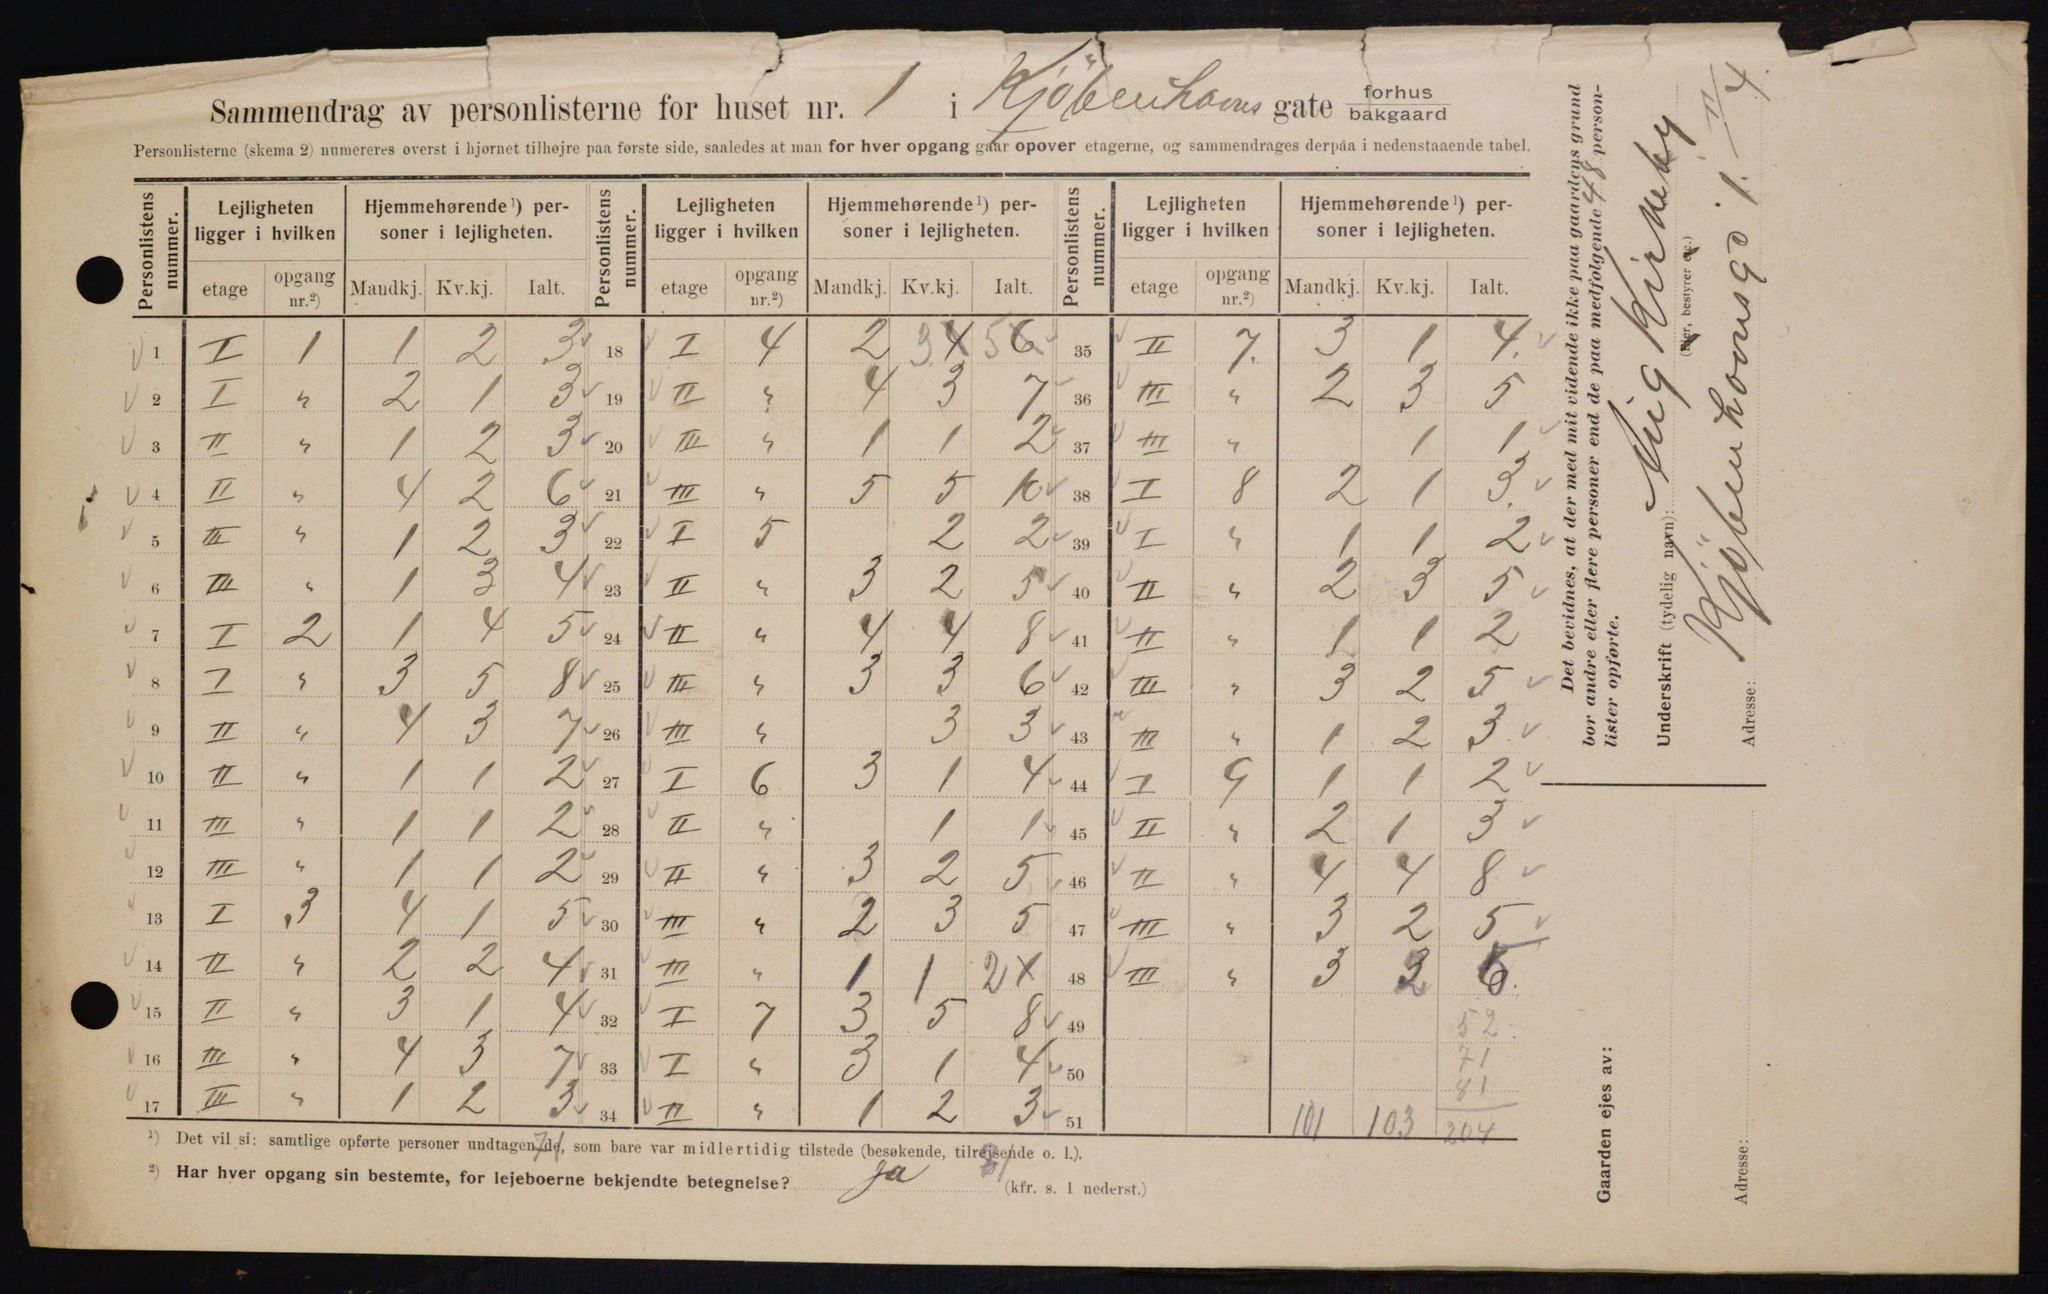 Sammendrag av personlisterne for huset nr. 1 i Kjöbenhavns gate forhus bakgaard
Personlisterne (skema 2) numereres øverst i hjørnet tilhøjre paa første side, saaledes at man for hver opgang gaar opover etagerne, og sammendrages derpaa i nedenstaaende tabel.
Personlistens nummer. Lejligheten ligger i hvilken Hjemmehørende¹) personer i lejligheten. Personlistens nummer. Lejligheten ligger i hvilken Hjemmehørende¹) personer i lejligheten. Personlistens nummer. Lejligheten ligger i hvilken Hjemmehørende¹) personer i lejligheten.
etage opgang nr.²) Mandkj. Kv.kj. Ialt. etage opgang nr.²) Mandkj. Kv.kj. Ialt. etage opgang nr.²) Mandkj. Kv.kj. Ialt.
1 I 1 1 2 3 18 I 4 2 3 4 5 6 35 II 7. 3 1 4.
2 I " 2 1 3 19 II " 4 3 7 36 III " 2 3 5
3 II " 1 2 3 20 III " 1 1 2 37 III " 1 1
4 II " 4 2 6 21 III " 5 5 10 38 I 8 2 1 3
5 III " 1 2 3 22 I 5 2 2 39 I " 1 1 2
6 III " 1 3 4 23 II " 3 2 5 40 II " 2 3 5
7 I 2 1 4 5 24 II " 4 4 8 41 II " 1 1 2
8 I " 3 5 8 25 III " 3 3 6 42 III " 3 2 5
9 II " 4 3 7 26 III " 3 3 43 III " 1 2 3
10 II " 1 1 2 27 I 6 3 1 4 44 I 9 1 1 2
11 III " 1 1 2 28 II " 1 1 45 II " 2 1 3
12 III " 1 1 2 29 II " 3 2 5 46 II " 4 4 8
13 I 3 4 1 5 30 III " 2 3 5 47 III " 3 2 5
14 II " 2 2 4 31 III " 1 1 2 1 48 III " 3 3 6.
15 II " 3 1 4 32 I 7 3 5 8 49 52
16 III " 4 3 7 33 I " 3 1 4 50 71
81
17 III " 1 2 3 34 II " 1 2 3 51 101 103 204
¹) Det vil si: samtlige opførte personer undtagen de, som bare var midlertidig tilstede (besøkende, tilrejsende o. l.).
71 81
²) Har hver opgang sin bestemte, for lejeboerne bekjendte betegnelse? ja (kfr. s. 1 nederst.)
Det bevidnes, at der med mit vidende ikke paa gaardens grund
bor andre eller flere personer end de paa medfølgende 48 person-
lister opførte.
Underskrift (tydelig navn): Aug Kirkeby
(Eier, bestyrer etc.)
Adresse: Kjöbenhavnsgd 1. IV/4.
Gaarden ejes av:
Adresse: